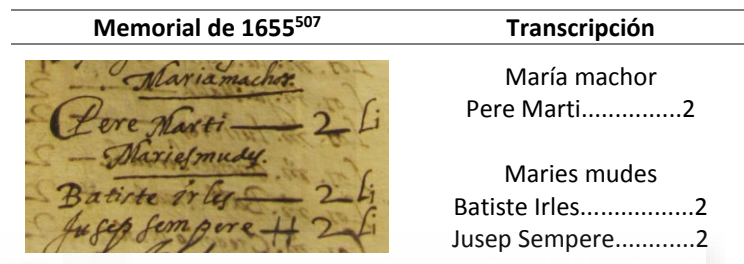 Memorial de 1655507
Transcripción
Mariamachor.
Pere Marti — 2 Li
Mariesmudes.
Batiste irles — 2 Li
Jusep sempere H 2 Li
María machor
Pere Marti...............2
Maries mudes
Batiste Irles.................2
Jusep Sempere............2